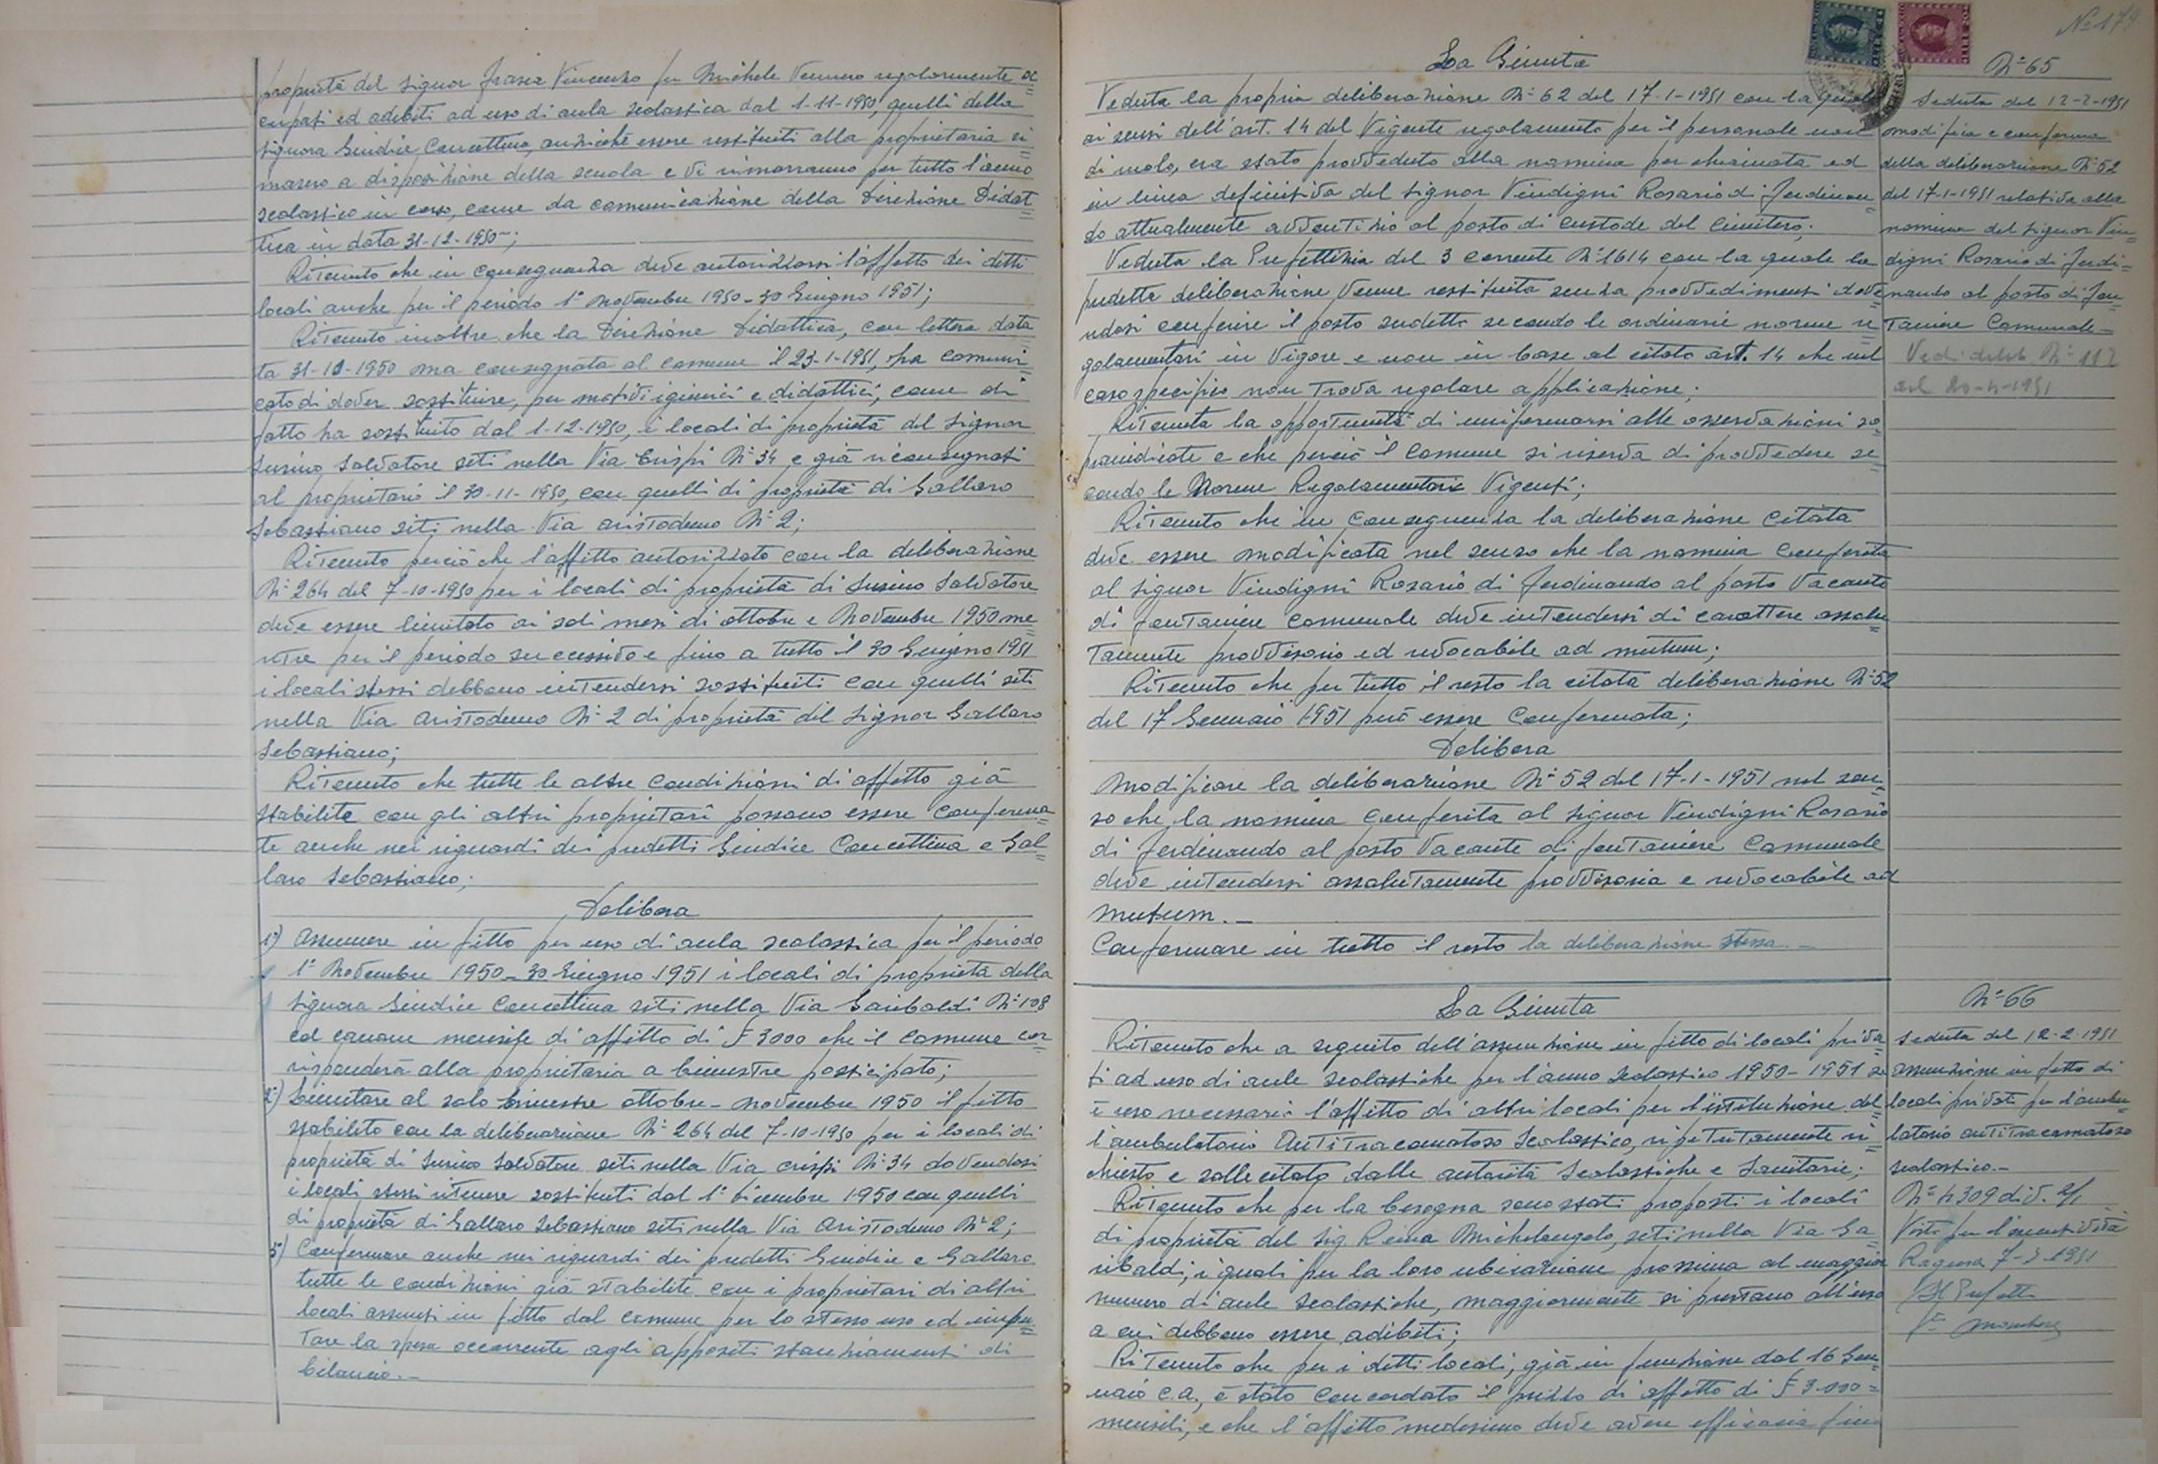 proprietà del signor Frasca Vincenzo fu Michele vennero regolarmente oc=
cupati ed adibiti ad uso di aula scolastica dal 1-11-1950, quelli della
signora Giudice Concettina, anzichè essere restituiti alla proprietaria ri=
masero a disposizione della scuola e vi rimarranno per tutto l'anno
scolastico in corso, come da comunicazione della Direzione Didat=
tica in data 31-12-1950;
Ritenuto che in conseguenza deve autorizzarsi l'affitto dei detti
locali anche per il periodo 1° Novembre 1950-30 Giugno 1951;
Ritenuto inoltre che la Direzione Didattica, con lettera data
ta 31-10-1950 ma consegnata al comune il 23-1-1951, ha comuni=
cato di dover sostituire, per motivi igienici e didattici, come di
fatto ha sostituito dal 1-12-1950, i locali di proprietà del signor
Susino Salvatore siti nella Via Crispi N° 34 e già riconsegnati
al proprietario il 30-11-1950, con quelli di proprietà di Gallaro
Sebastiano siti nella Via Aristodemo N° 2;
Ritenuto perciò che l'affitto autorizzato con la deliberazione
N° 264 del 7-10-1950 per i locali di proprietà di Susino Salvatore
deve essere limitato ai soli mesi di ottobre e Novembre 1950 me=
ntre per il periodo successivo e fino a tutto il 30 Giugno 1951
i locali stessi debbono intendersi sostituiti con quelli siti
nella Via Aristodemo N° 2 di proprietà del signor Gallaro
Sebastiano;
Ritenuto che tutte le altre condizioni di affitto già
stabilite con gli altri proprietari possono essere conferma=
te anche nei riguardi dei predetti Giudice Concettina e Gal=
laro Sebastiano;
Delibera
1°) Assumere in fitto per uso di aula scolastica per il periodo
1° Novembre 1950-30 Giugno 1951 i locali di proprietà della
signora Giudice Concettina siti nella Via Garibaldi N° 108
col canone mensile di affitto di £ 3000 che il comune cor=
risponderà alla proprietaria a bimestre posticipato;
2°) Limitare al solo bimestre ottobre-Novembre 1950 il fitto
stabilito con la deliberazione N° 264 del 7-10-1950 per i locali di
proprietà di Susino Salvatore siti nella Via Crispi N° 34 dovendosi
i locali stessi ritenere sostituiti dal 1° Dicembre 1950 con quelli
di proprietà di Gallaro Sebastiano siti nella Via Aristodemo N° 2;
3°) Confermare anche nei riguardi dei predetti Giudice e Gallaro
tutte le condizioni già stabilite con i proprietari di altri
locali assunti in fitto dal comune per lo stesso uso ed impu=
tare la spesa occorrente agli appositi stanziamenti di
bilancio.-
N° 179
La Giunta
Veduta la propria deliberazione N° 62 del 17-1-1951 con la quale
ai sensi dell'art. 14 del Vigente regolamento per il personale non
di ruolo, era stato provveduto alla nomina per chiamata ed
in linea definitiva del signor Vindigni Rosario di Ferdinan=
do attualmente avventizio al posto di custode del cimitero;
Veduta la Prefettizia del 3 corrente N° 1614 con la quale la
predetta deliberazione venne restituita senza provvedimenti dove=
ndosi conferire il posto sudetto secondo le ordinarie norme re=
golamentari in Vigore e non in base al citato art. 14 che nel
caso specifico non trova regolare applicazione;
Ritenuta la opportunità di uniformarsi alle osservazioni so=
praindicate e che perciò il comune si riserva di provvedere se=
condo le Norme Regolamentari Vigenti;
Ritenuto che in conseguenza la deliberazione citata
deve essere modificata nel senso che la nomina conferita
al signor Vindigni Rosario di Ferdinando al posto vacante
di fontaniere comunale deve intendersi di carattere assolu=
tamente provvisorio ed revocabile ad mutum;
Ritenuto che per tutto il resto la citata deliberazione N° 52
del 17 Gennaio 1951 può essere confermata;
Delibera
Modificare la deliberazione N° 52 del 17-1-1951 nel sen=
so che la nomina conferita al signor Vindigni Rosario
di Ferdinando al posto vacante di fontaniere comunale
deve intendersi assolutamente provvisoria e revocabile ad
mutum.-
Confermare in tutto il resto la deliberazione stessa.-
N° 65
Seduta del 12-2-1951
Modifica e conferma
della deliberazione N° 52
del 17-1-1951 relativa alla
nomina del signor Vin=
digni Rosario di Ferdi=
nando al posto di Fon=
taniere Comunale=
Vedi delib. N° 112
del 20-4-1951
La Giunta
Ritenuto che a seguito dell'assunzione in fitto di locali priva=
ti ad uso di aule scolastiche per l'anno scolastico 1950-1951 si
è reso necessario l'affitto di altri locali per l'istituzione del=
l'ambulatorio antitracomatoso scolastico, ripetutamente ri=
chiesto e sollecitato dalle autorità scolastiche e sanitarie;
Ritenuto che per la bisogna sono stati proposti i locali
di proprietà del sig. Reina Michelangelo, siti nella Via Ga=
ribaldi, i quali per la loro ubicazione prossima al maggior
numero di aule scolastiche, maggiormente si prestano all'uso
a cui debbono essere adibiti;
Ritenuto che per i detti locali, già in funzione dal 16 Gen=
naio c.a., è stato concordato il prezzo di affitto di £ 3.000=
mensili, e che l'affitto medesimo deve avere efficacia fino
N° 66
Seduta del 12-2-1951
Assunzione in fitto di
locali privati per l'ambu=
latorio antitracomatoso
scolastico.-
N° 4309 div. 2/1
Visto per l'esecutività
Ragusa 7-3-1951
Il Prefetto